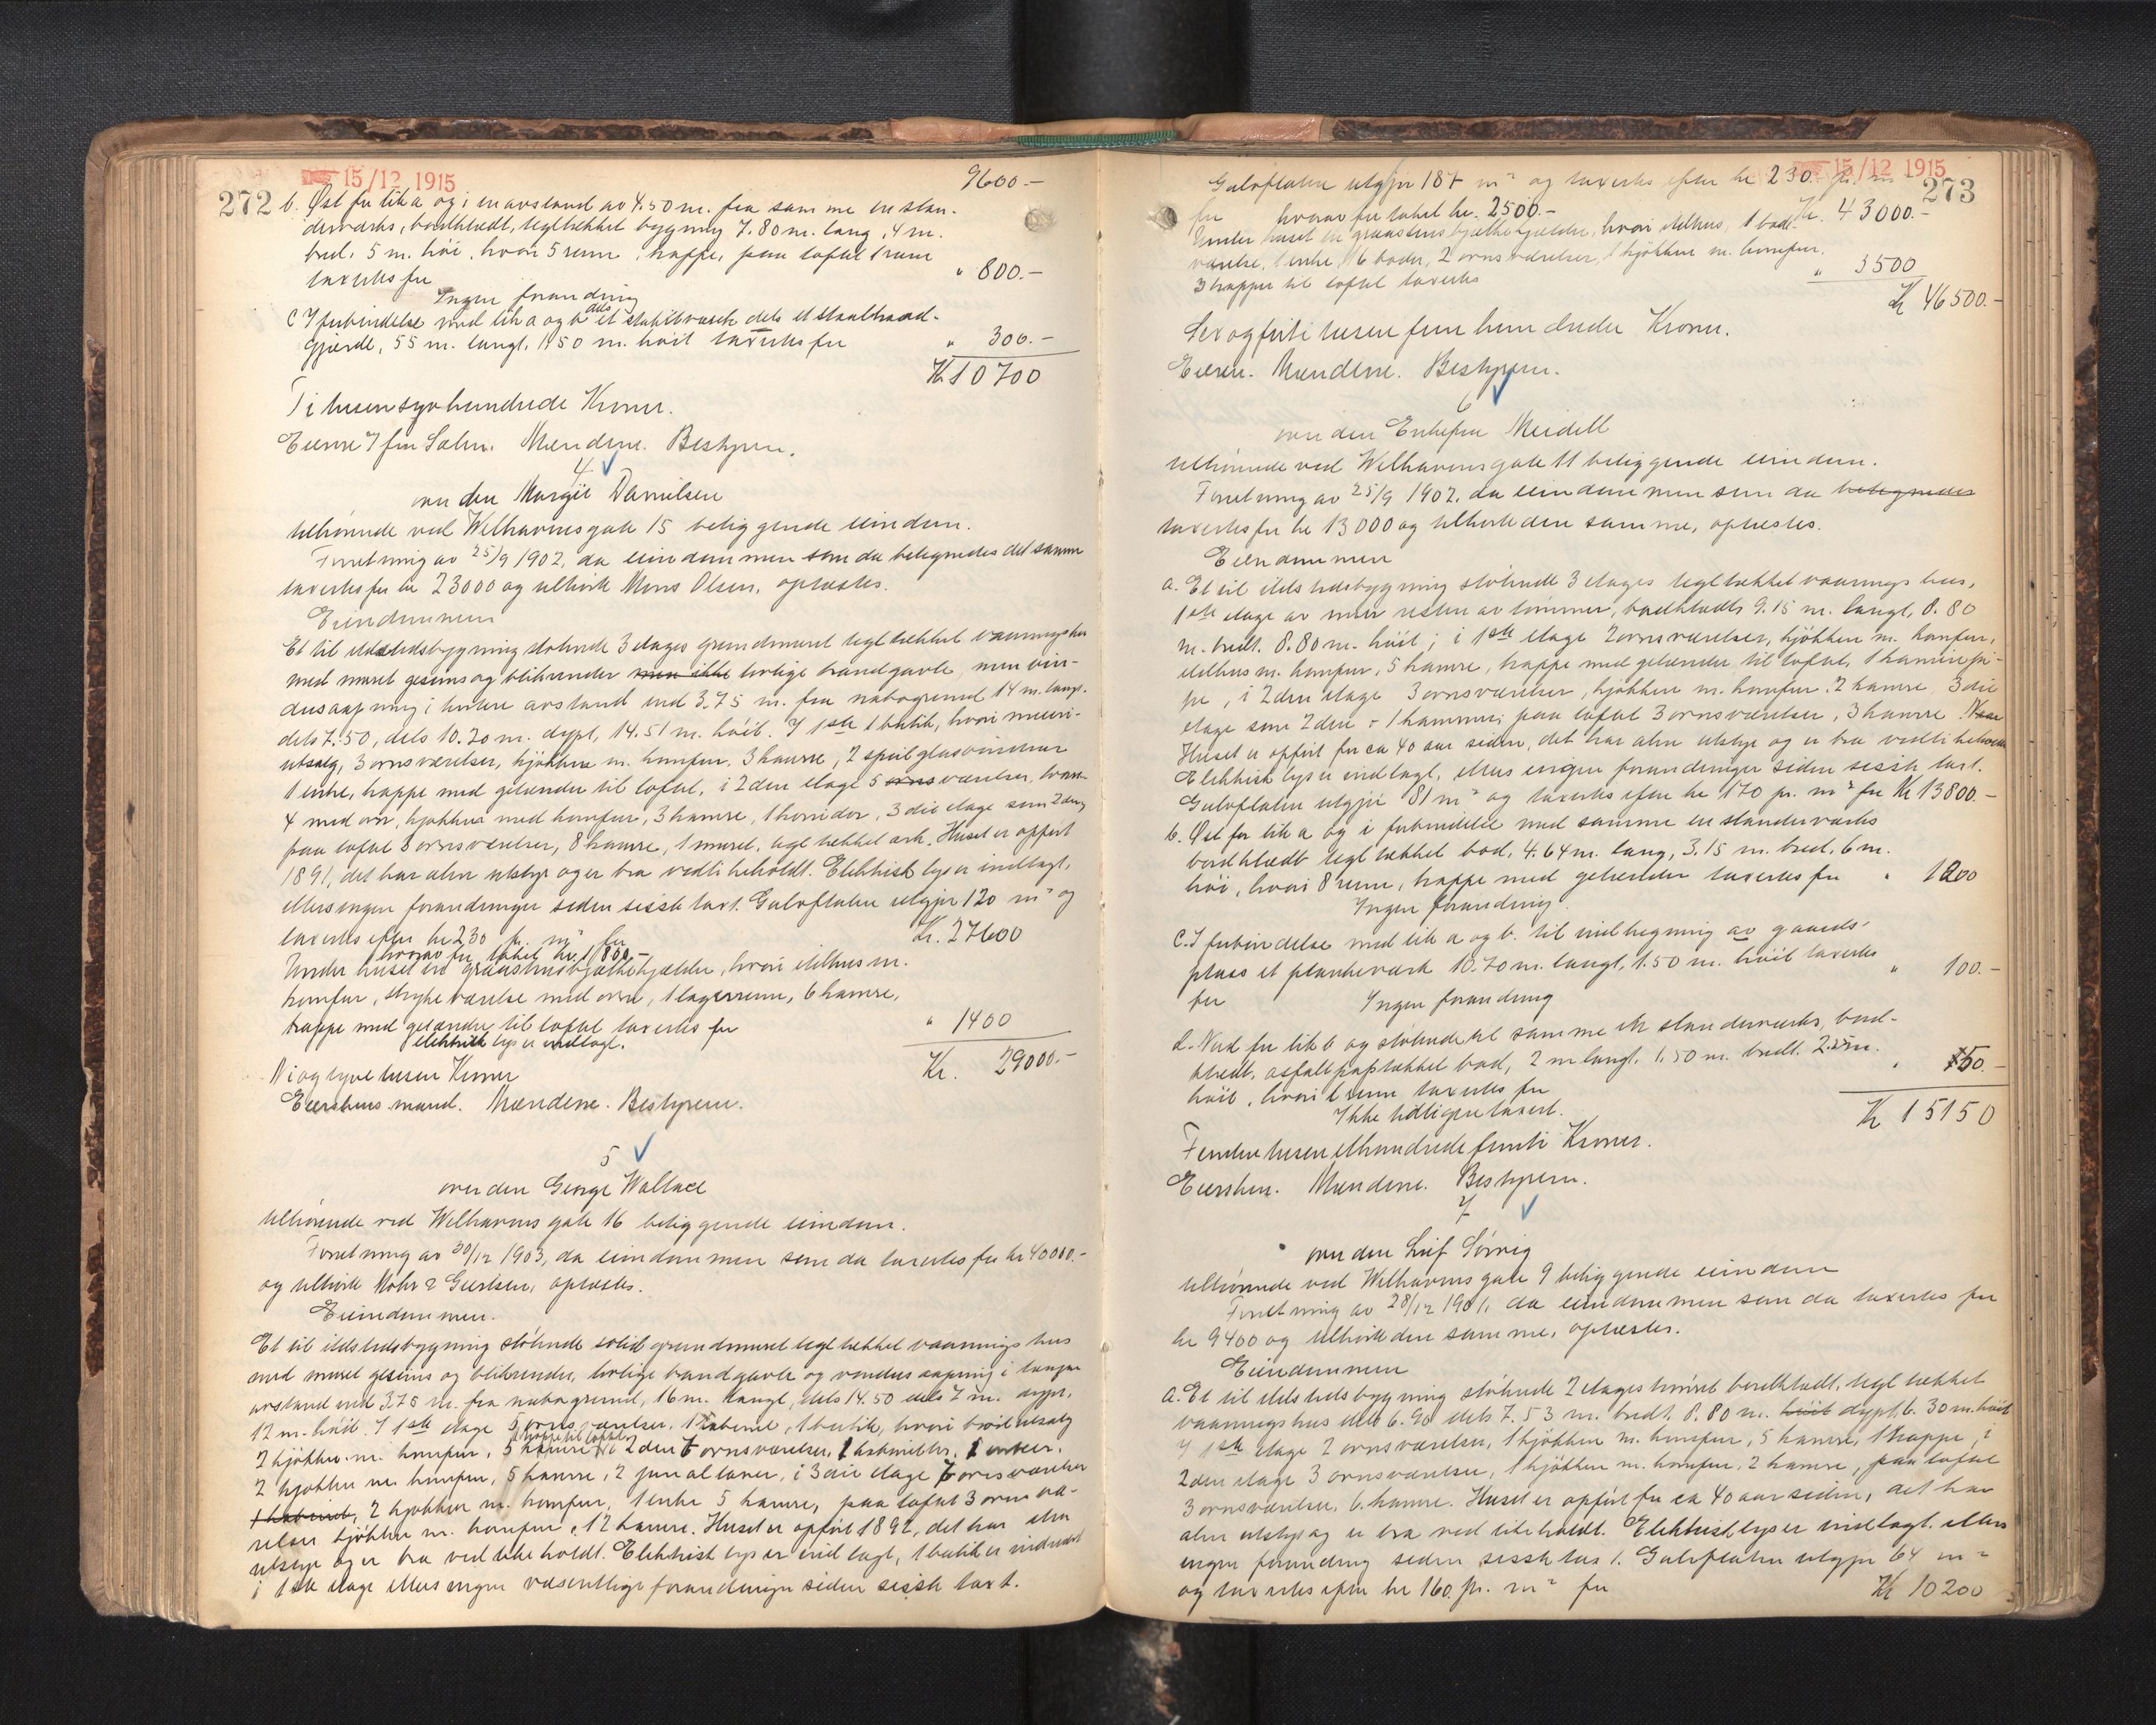 15/12 1915
272
9600.-
b. Øst for lit a og i en avstand av 4.50 m. fra samme en stan-
derværks, bordklædt, tegltækket bygning 7.80 m. lang, 4 m.
bred, 5 m. høi, hvori 5 rum, trappe, paa loftet 1 rum
taxertes for " 800.-
Ingen forandring
C I forbindelse med lit a og b dels et stakitværk dels et staaltraad-
gjerde, 55 m. langt, 1.50 m. høit taxertes for " 300.-
Kr. 10700
Ti tusen syvhundrede Kroner.
Eieren Mændene. Bestyreren.
4
over den Margit Danielsen
tilhørende ved Welhavensgate 15 beliggende eiendom.
Forretning av 25/9 1902, da eiendommen som da betegnedes det samme
taxertes for kr 23000 og tilhørte Mons Olsen, oplæstes.
Eiendommen
Et til ildstedsbygning støtende 3 etages grundmuret tegltækket vaaningshus
med muret gesims og blikrender men ikke lovlige brandgavle, men vin-
duesaapning i kortere avstand end 3.75 m. fra nabogrund 14 m. langt,
dels 7.50, dels 10.20 m. dypt, 14.51 m. høit. I 1ste 1 butik, hvori
utsalg, 3 ovnsværelser, kjøkken m. komfur, 3 kamre, 2 speilglasvinduer
1 entre, trappe med gelænder til loftet, i 2den etage 5 ovnsværelser, hvorav
4 med ovn, kjøkken med komfur, 3 kamre, 1 korridor, 3die etage som 2den,
paa loftet 3 ovnsværelser, 8 kamre, 1 muret, tegltækket ark. Huset er opført
1891, det har alm utstyr og er bra vedlikeholdt. Elektrisk lys er indlagt,
ellers ingen forandringer siden sidste taxt. Gulvflaten utgjør 120 m² og
taxertes efter kr 230 pr. m² for Kr. 27600
hvorav for taket kr. 1800.-
Under huset en graastensbjælkekjælder, hvori ildhus m.
komfur, strykeværelse med ovn, 1 lagerrum, 6 kamre,
trappe med gelænder til loftet taxertes for " 1400
elektrisk lys er indlagt.
Kr. 29000.-
Ni og tyve tusen Kroner
Eierens mand. Mændene. Bestyreren.
5
over den George Wallace
tilhørende ved Welhavens gate 16 beliggende eiendom.
Forretning av 30/12 1903, da eiendommen som da taxertes for kr 40000.-
og tilhørte Mohr & Giertsen, oplæstes.
Eiendommen.
Et til ildstedsbygning støtende solid grundmuret tegltækket vaaningshus
med muret gesims og blikrender, lovlige brandgavle og vindusaapning i længer
avstand end 3.75 m. fra nabogrund, 16 m. langt, dels 14.50 dels 7 m. dypt,
12 m. høit. I 1ste etage 5 ovnsværelser, 1 kabinet, 1 butik, hvori brødutsalg
2 kjøkken m. komfur, 5 kamre, 1 trappe til loftet, i 2den 7 ovnsværelser,
2 kjøkken m. komfur, 5 kamre, 2 i 3die etage 7 ovnsværelser
1 kabinet, 2 kjøkken m. komfur, 1 entre 5 kamre, paa loftet 3 ovnsvæ-
relser kjøkken m. komfur, 12 kamre. Huset er opført 1892, det har alm
utstyr og er bra vedlikeholdt. Elektrisk lys er indlagt, 1 butik er indredet
i 1ste etage ellers ingen væsentlige forandringer siden sidste taxt.
15/12 1915
273
Gulvflaten utgjør 187 m² og taxertes efter kr 230 pr. m²
for Kr. 43000.-
hvorav for taket kr. 2500.-
Under huset en graastensbjælkekjælder, hvori ildhus, 1 bade-
værelse, 1 entre, 6 boder, 2 ovnsværelser, 1 kjøkken m. komfur,
3 trapper til loftet taxertes " 3500
Kr 46500.-
Sex og firti tusen fem hundrede Kroner.
Eieren. Mændene. Bestyreren.
6
over den Enkefru Meidell
tilhørende ved Welhavensgate 11 beliggende eiendom.
Forretning av 25/9 1902, da eiendommen som da betegnedes
taxertes for kr 13000 og tilhørte den samme, oplæstes.
Eiendommen
a. Et til ildstedsbygning støtende 3 etages tegltækket vaaningshus,
1ste etage av mur resten av tømmer, bordklædt 9.15 m. langt, 8.80
m. bredt, 8.80 m. høit; i 1ste etage 2 ovnsværelser, kjøkken m. komfur,
ildhus m. komfur, 5 kamre, trappe med gelænder til loftet, 1 kaminpi-
pe, i 2den etage 3 ovnsværelser, kjøkken m. komfur, 2 kamre, 3die
etage som 2den + 1 kammer; paa loftet 3 ovnsværelser, 3 kamre
Huset er opført for ca 40 aar siden, det har alm utstyr og er bra vedlikeholdt
Elektrisk lys er indlagt, ellers ingen forandringer siden sidste taxt.
Gulvflaten utgjør 81 m² og taxertes efter kr 170 pr. m² for Kr 13800.-
b. Øst for lit a og i forbindelse med samme en standerværks
bordklædt tegltækket bod, 4.64 m. lang, 3.15 m. bred, 6 m.
høi, hvori 8 rum, trappe med gelænder taxertes for " 1200
Ingen forandring
C. I forbindelse med lit a og b. til indhegning av gaards-
plass et plankeværk 10.70 m. langt, 1.50 m. høit taxertes
for " 100.-
Ingen forandring
d. Nord for lit b og støtende til samme et standerværks, bord-
klædt, asfaltpaptækket bod, 2 m langt, 1.50 m. bredt, 2.25 m.
høit, hvori 1 rum taxertes for " 50.-
Ikke tidligere taxert.
Kr 15150
Femten tusen ethundrede femti Kroner.
Eiersken. Mændene. Bestyreren.
7
over den Leif Sørvig
tilhørende ved Welhavensgate 9 beliggende eiendom
Forretning av 28/12 1901, da eiendommen som da taxertes for
kr 9400 og tilhørte den samme, oplæstes.
Eiendommen
a. Et til ildstedsbygning støtende 2 etages tømret bordklædt, tegltækket
vaaningshus dels 6.90 dels 7.53 m. bredt, 8.80 m. høit dypt, 6.30 m. høit
I 1ste etage 2 ovnsværelser, 1 kjøkken m. komfur, 5 kamre, 1 trappe, i
2den etage 3 ovnsværelser, 1 kjøkken m. komfur, 2 kamre, paa loftet
3 ovnsværelser, 6 kamre. Huset er opført for ca 40 aar siden, det har
alm utstyr og er bra vedlikeholdt. Elektrisk lys er indlagt, ellers
ingen forandring siden sidste taxt. Gulvflaten utgjør 64 m²
og taxertes efter kr 160 pr. m² for Kr 10200